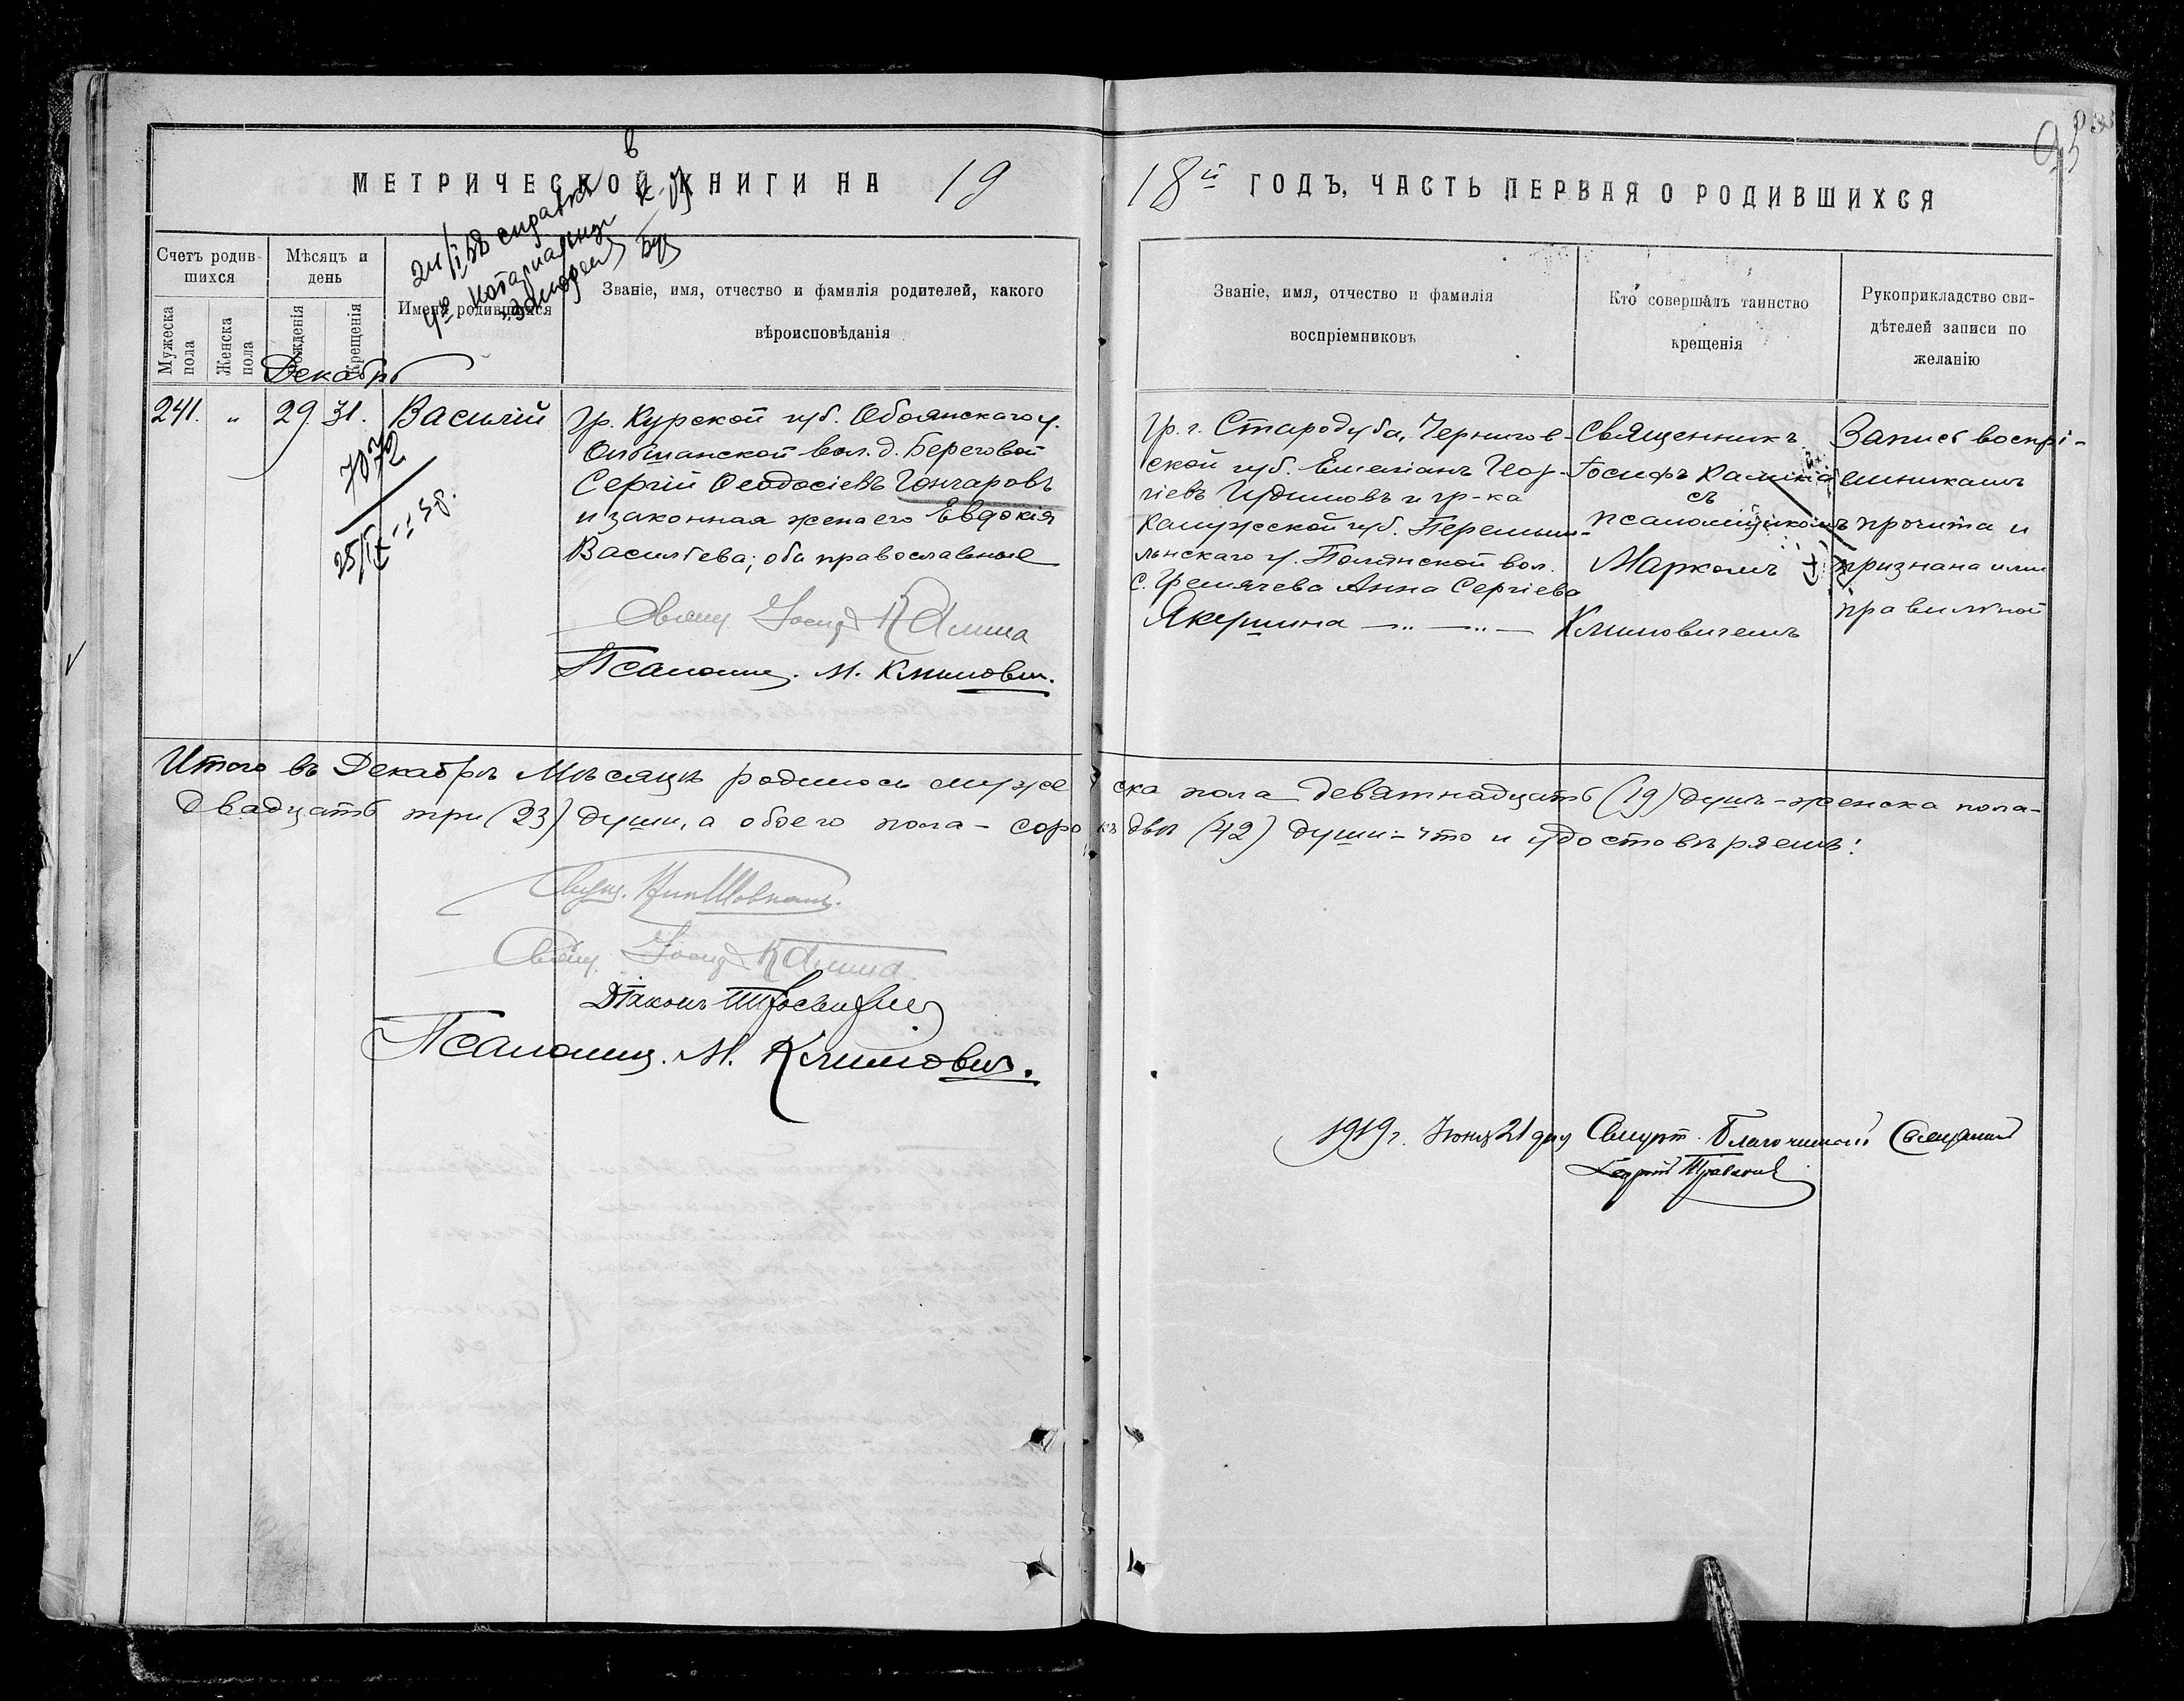 95
МЕТРИЧЕСКОЙ КНИГИ НА 19
18й ГОДЪ, ЧАСТЬ ПЕРВАЯ О РОДИВШИХСЯ
справка
Счетъ родив-
шихся
Мужеска
пола
Женска
пола
Мѣсяцъ и
день
Рожденія
Крещенія
Имена родившихся
Званіе, имя, отчество и фамилія родителей, какого
вѣроисповѣданія
Званіе, имя, отчество и фамилія
воспріемниковъ
Кто совершалъ таинство
крещенія
Рукоприкладство сви-
дѣтелей записи по
желанію
Декабрь
241. „ 29. 31. Василій
7072
Гр. Курской губ. Обоянскаго у.
Ольшанской вол. д. Береговой
Сергій Ѳеодосіевъ Гончаровъ
и законная жена его Евдокія
Васильева; оба православные
Свящ. Іосиф Калина
Псаломщ. М. Климович.
Гр. г. Стародуба, Чернигов-
ской губ. Емеліанъ Геор-
гіевъ и гр-ка
Калужской губ. Перемыш-
льскаго у. Полянской вол.
с. Гремячева Анна Сергіева
Якушина
Священникъ
Іосифъ Калина
съ
псаломщикомъ
Маркомъ
Климовичемъ
Запись воспрі-
емникамъ
прочита и
признана ими
правильной
Итого въ Декабрѣ Мѣсяцѣ родилось мужеска пола девятнадцать (19) душъ - женска пола -
двадцать три (23) души, а обоего пола - сорокъ двѣ (42) души - что и удостовѣряемъ:
Свящ. Іосиф Калина
Діаконъ
Псаломщ. М. Климович.
1919 г. Іюня 21 дня Смотр. Благочинный Священник